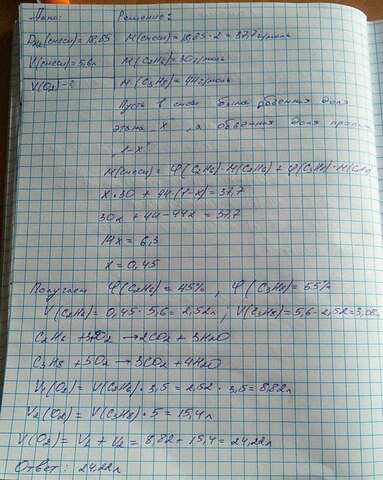 Дано: Решение:
D H2 (смеси) = 18,85 M(смеси) = 18,85 · 2 = 37,7 г/моль
V(смеси) = 5,6л M(C2H6) = 30 г/моль
V(O2) - ? M(C3H8) = 44 г/моль
Пусть в смеси была объемная доля
этана x, а объемная доля пропана
1-x
M(смеси) = φ(C2H6) · M(C2H6) + φ(C3H8) · M(C3H8)
x · 30 + 44 · (1-x) = 37,7
30x + 44 - 44x = 37,7
14x = 6,3
x = 0,45
Получаем φ(C2H6) = 45%, φ(C3H8) = 55%
V(C2H6) = 0,45 · 5,6 = 2,52л; V(C3H8) = 5,6 - 2,52 = 3,08л
C2H6 + O2 → 2CO2 + 3H2O
C3H8 + 5O2 → 3CO2 + 4H2O
V1(O2) = V(C2H6) · 3,5 = 2,52 · 3,5 = 8,82л
V2(O2) = V(C3H8) · 5 = 15,4л
V(O2) = V1 + V2 = 8,82 + 15,4 = 24,22л
Ответ: 24,22л